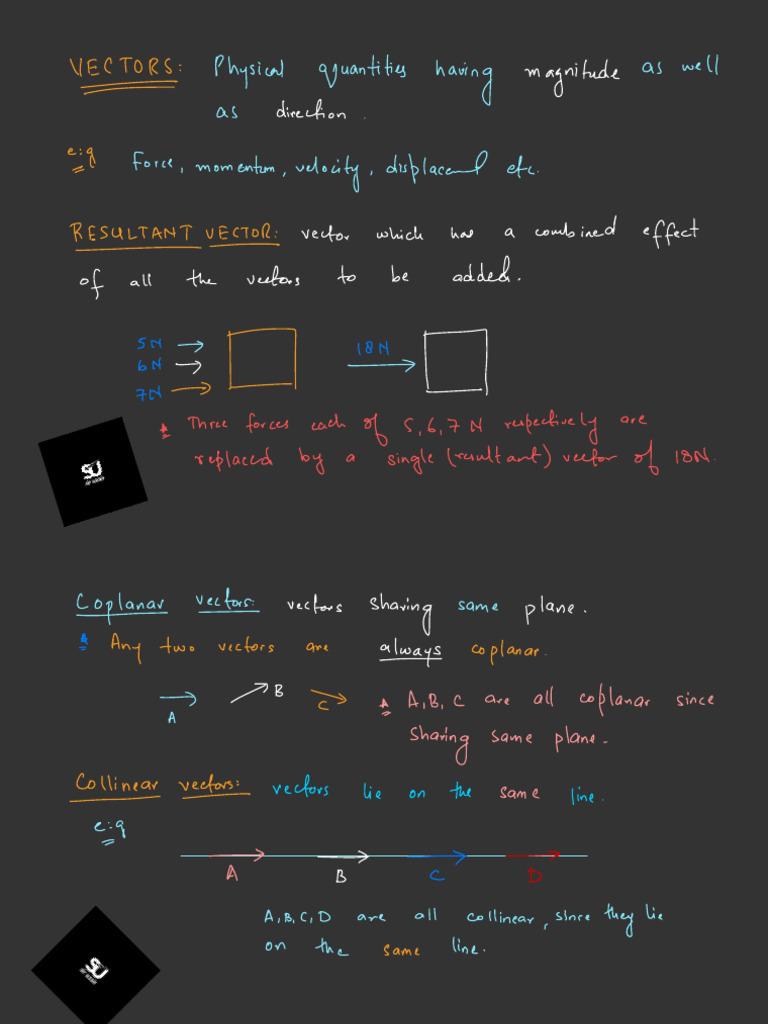 VECTORS: Physical quantities having magnitude as well
as direction.
e:g Force, momentum, velocity, displacement etc.
RESULTANT VECTOR: vector which has a combined effect
of all the vectors to be added.
5N
6N
7N
18N
* Three forces each of 5,6,7 N respectively are
replaced by a single (resultant) vector of 18N.
SU
Coplanar vectors: vectors sharing same plane.
* Any two vectors are always coplanar.
A B C
* A,B,C are all coplanar since
sharing same plane.
Collinear vectors: vectors lie on the same line.
e:g
A B C D
A,B,C,D are all collinear, since they lie
on the same line.
SU